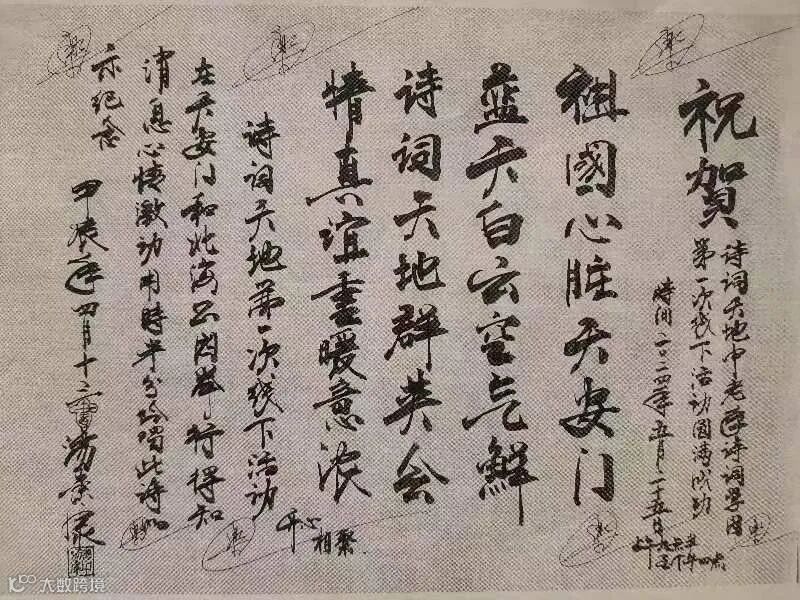 祝賀
诗词天地中老年诗词学园
第一次线下活动圆满成功
時间二〇二四年五月二十五日
上午九点半
至下午四点
祖國心脏天安门
蓝天白云空气鲜
诗词天地群英会
情真谊重暖意浓
开心
相聚
诗词天地第一次线下活动
在天安门和北海公园举行得知
消息心情激动用時半分吟唱此诗以
示纪念
甲辰年四月十三
大数跨境